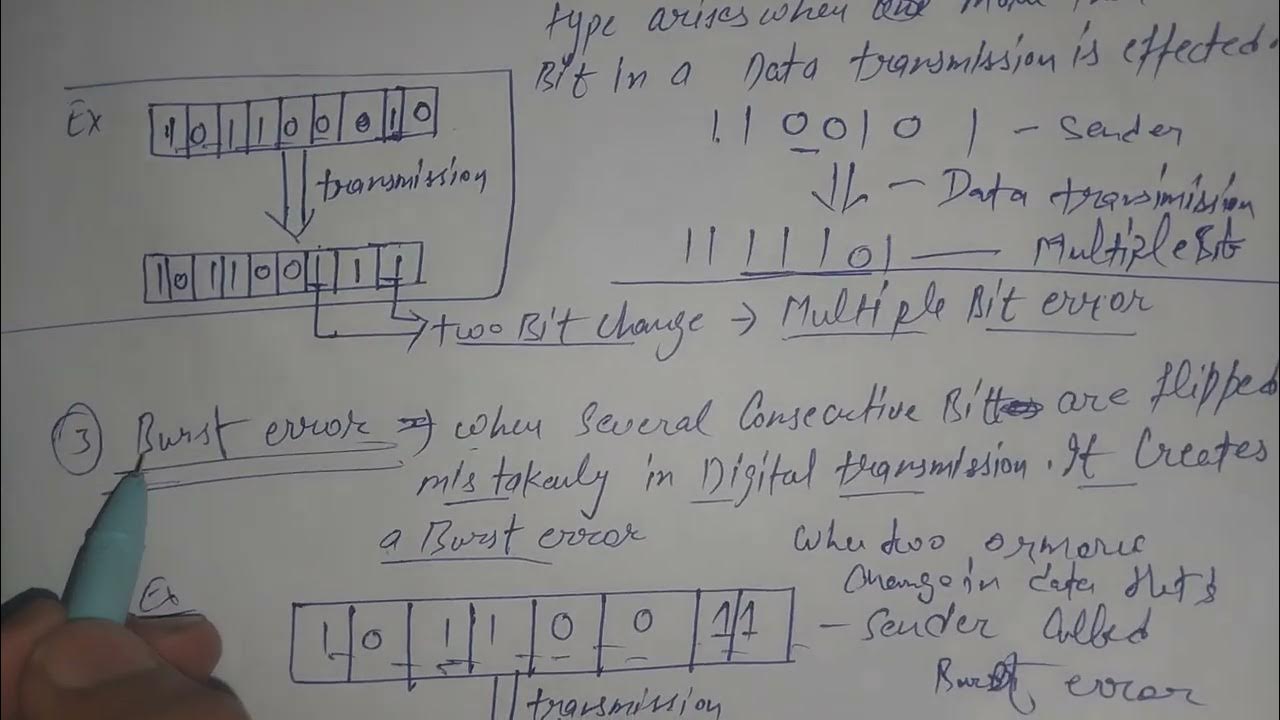 type arises when
Bit in a Data transmission is effected.
Ex 1 0 1 1 0 0 0 1 0
1 1 0 0 1 0 1 - Sender
transmission
- Data transimission
1 0 1 1 0 0 1 1 1
1 1 1 1 1 0 1 — Multiple Bit
two Bit Change → Multiple Bit error
3 Burst error ⇒ when Several Consecutive Bit are flipped
mistakenly in Digital transmission. It Creates
a Burst error
when two or more
Change in data
Ex
1 0 1 1 0 0 1 1 - Sender Called
Burst error
transmission